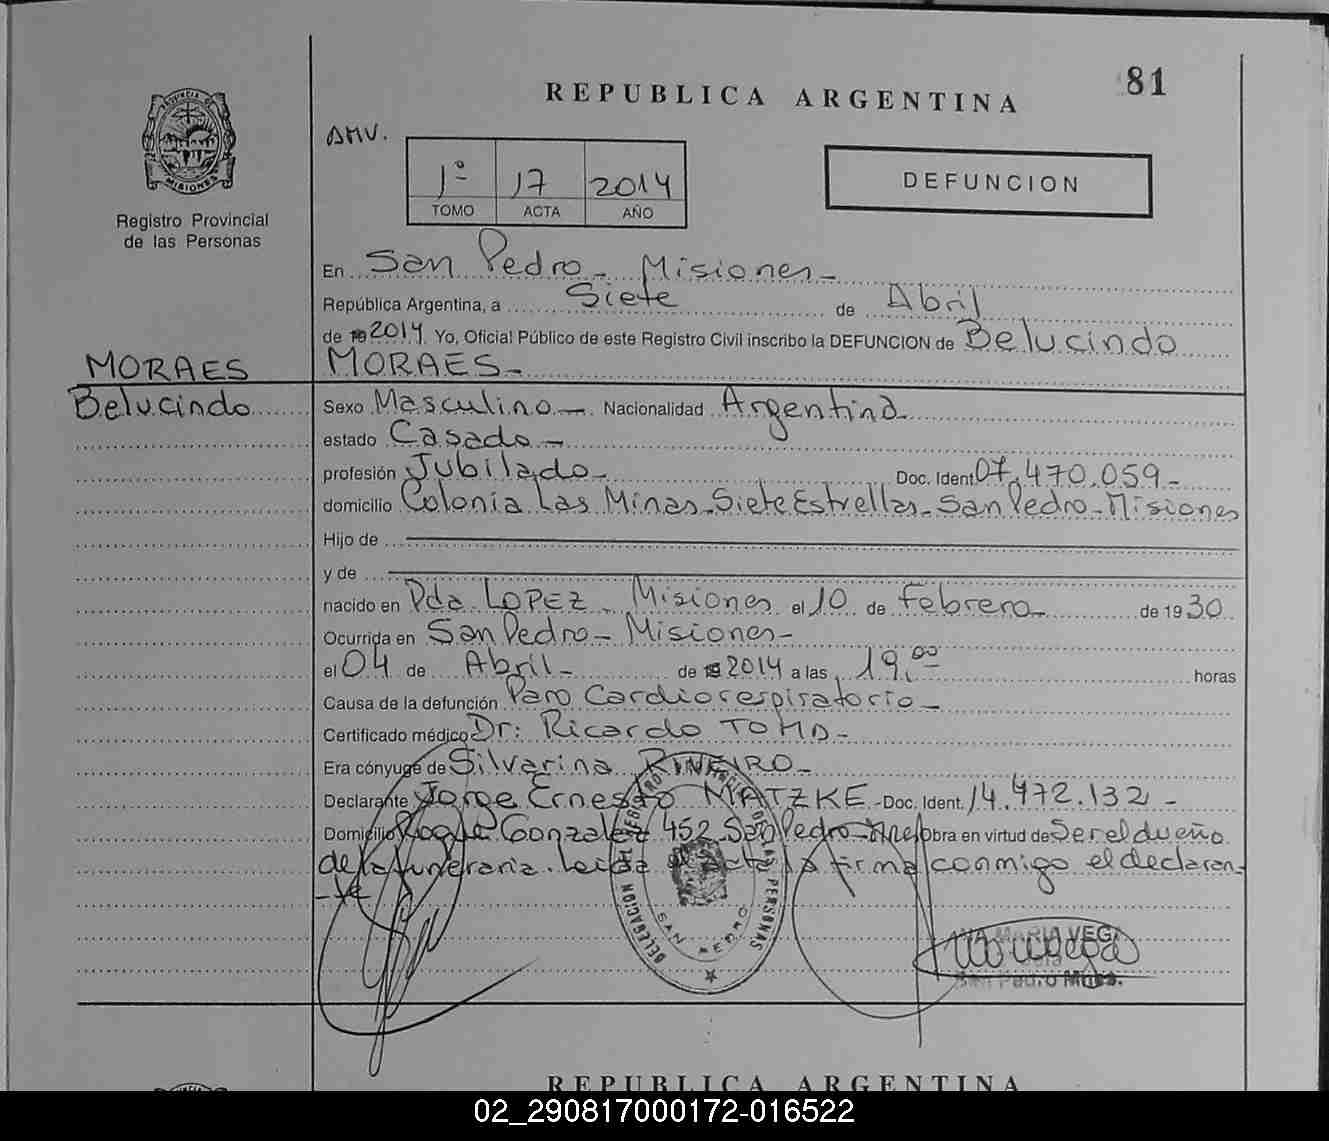 81
REPUBLICA ARGENTINA
PROVINCIA DE
MISIONES
Registro Provincial
de las Personas
AMV.
1º 17 2014
TOMO ACTA AÑO
DEFUNCION
En San Pedro - Misiones -
República Argentina, a Siete de Abril
de 2014 Yo, Oficial Público de este Registro Civil inscribo la DEFUNCION de Belucindo
MORAES MORAES -
Belucindo Sexo Masculino - Nacionalidad Argentina
estado Casado -
profesión Jubilado - Doc. Ident. 07.470.059 -
domicilio Colonia Las Minas - Siete Estrellas - San Pedro - Misiones
Hijo de
y de
nacido en Pda LOPEZ - Misiones el 10 de Febrero - de 1930
Ocurrida en San Pedro - Misiones -
el 04 de Abril - de 2014 a las 19,00 horas
Causa de la defunción Paro Cardiorespiratorio -
Certificado médico Dr: Ricardo
Era cónyuge de Silvarina
Declarante Jorge Ernesto MATZKE - Doc. Ident. 14.472.132 -
Domicilio Roque Gonzalez 452 San Pedro - Mnes Obra en virtud de Ser el dueño
de la funeraria. Leída el acta la firma conmigo el declaran-
-te
DELEGACION DEL REGISTRO PROVINCIAL DE LAS PERSONAS
SAN PEDRO
MARIA VEGA
San Pedro Mnes.
REPUBLICA ARGENTINA
02_290817000172-016522